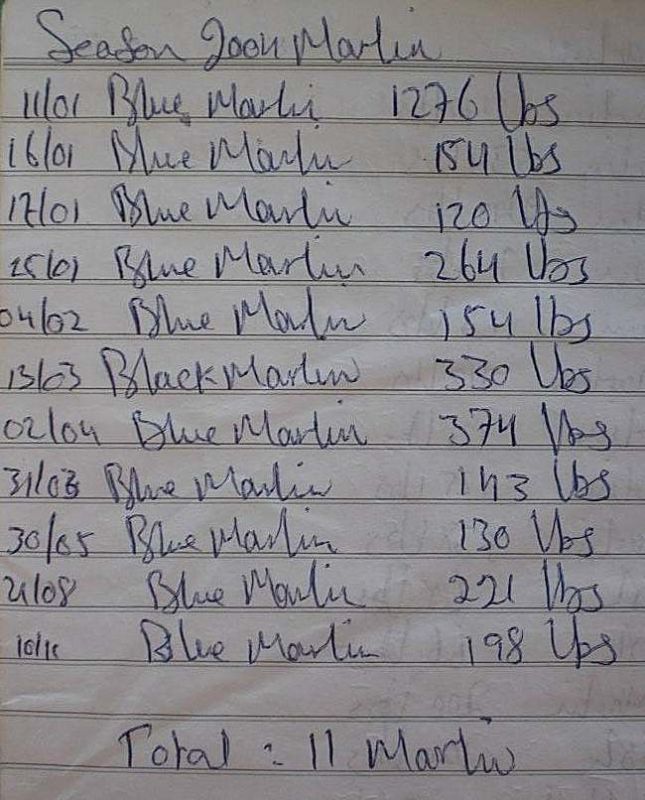 Season 2004 Marlin
11/01 Blue Marlin 1276 lbs
16/01 Blue Marlin 154 lbs
17/01 Blue Marlin 120 lbs
25/01 Blue Marlin 264 lbs
04/02 Blue Marlin 154 lbs
13/03 Black Marlin 330 lbs
02/04 Blue Marlin 374 lbs
31/03 Blue Marlin 143 lbs
30/05 Blue Marlin 130 lbs
21/08 Blue Marlin 221 lbs
Blue Marlin 198 lbs
Total = 11 Marlin